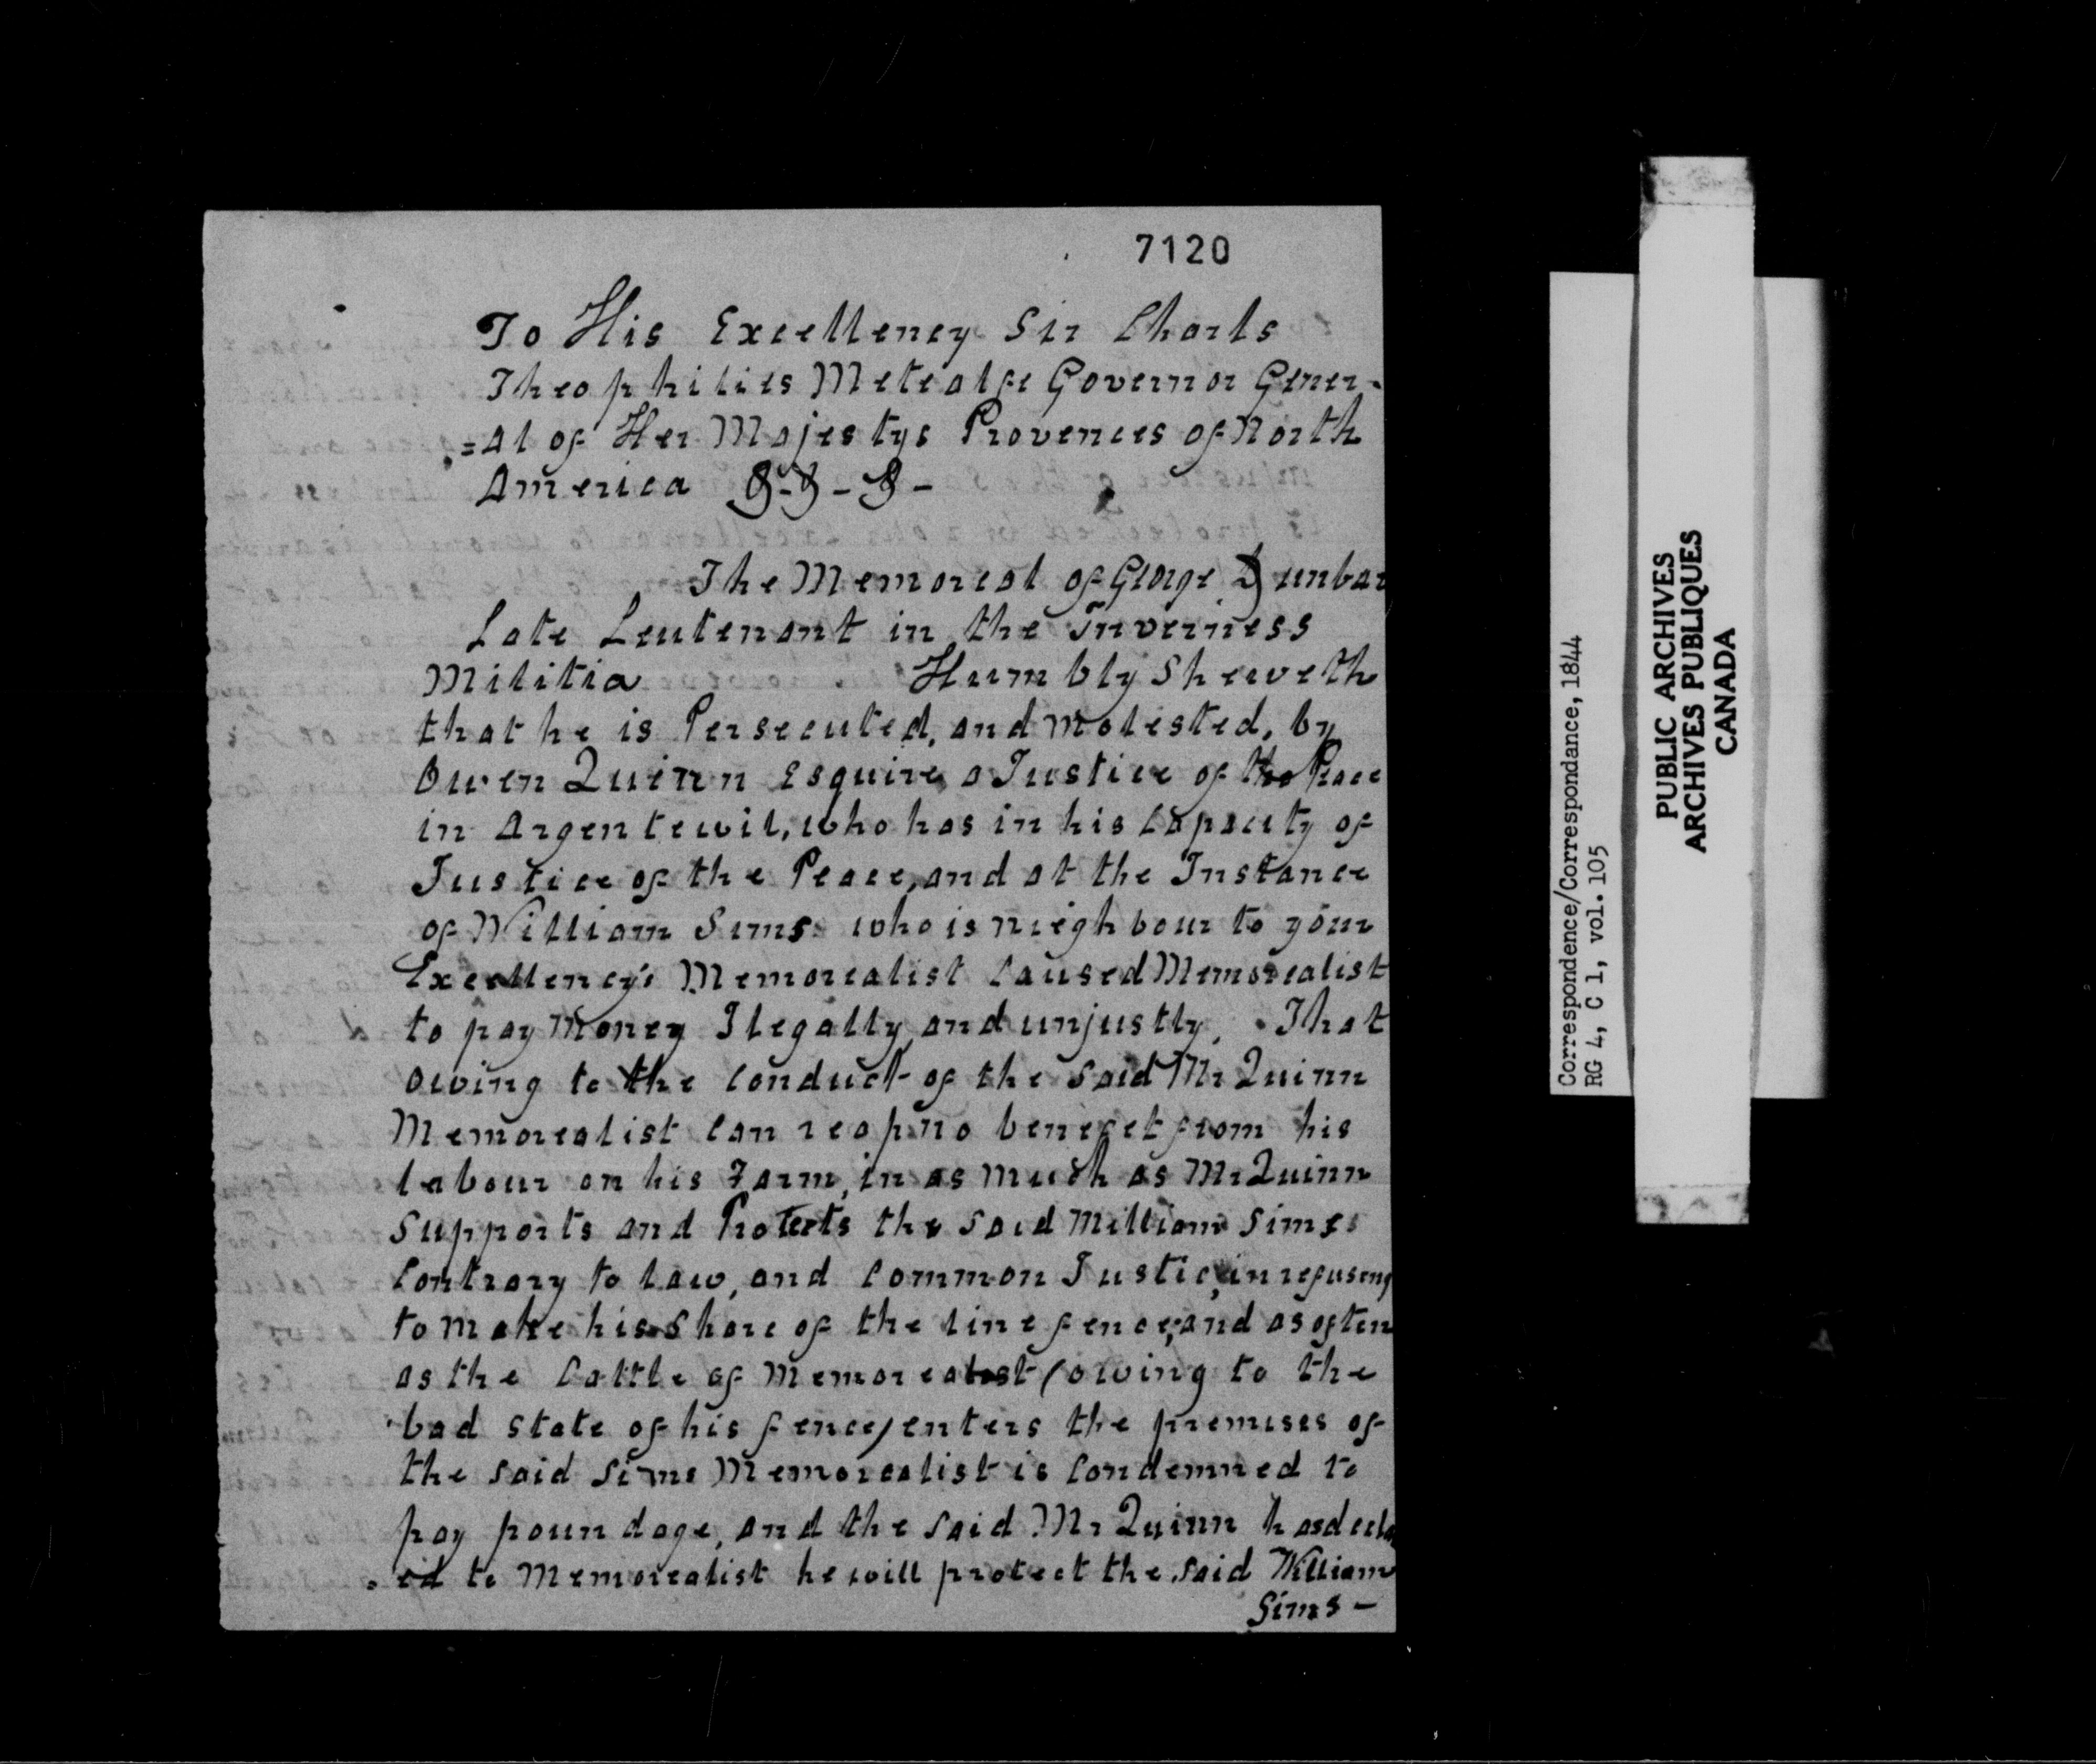 7120
To His Excellency Sir Charls
Theophilies Metcalfe Governor Gener-
=al of Her Majestys Provences of North
America &-&-&-
The Memoreal of George Dunbar
Late Leutenant in the Inverness
Militia Humbly Sheweth
that he is Persecuted, and Molested, by
Owen Quinn Esquire, a Justice of the Peace
in Argentewil, who has in his Capacity of
Justice of the Peace, and at the Instance
of William Sims who is nieghbour to your
Excellency's Memorealist Caused Memorealist
to pay Money Ilegally, and unjustly. That
owing to the Conduct of the said Mr Quinn
Memorealist Can reap no benefet from his
labour on his Farm, in as Much as Mr Quinn
Supports and Protects the said William Sims
Contrary to Law, and Common Justic, in refuseng
to Make his Share of the line fence, and as often
as the Cattle of Memorealest (owing to the
bad state of his fence) enters the premises of
the said Sims Memorealist is Condemned to
pay poundage, and the said Mr Quinn has decla
=ed to Memorealist he will protect the said William
Sims -
Correspondence/Correspondance, 1844
RG 4, C 1, vol. 105
PUBLIC ARCHIVES
ARCHIVES PUBLIQUES
CANADA